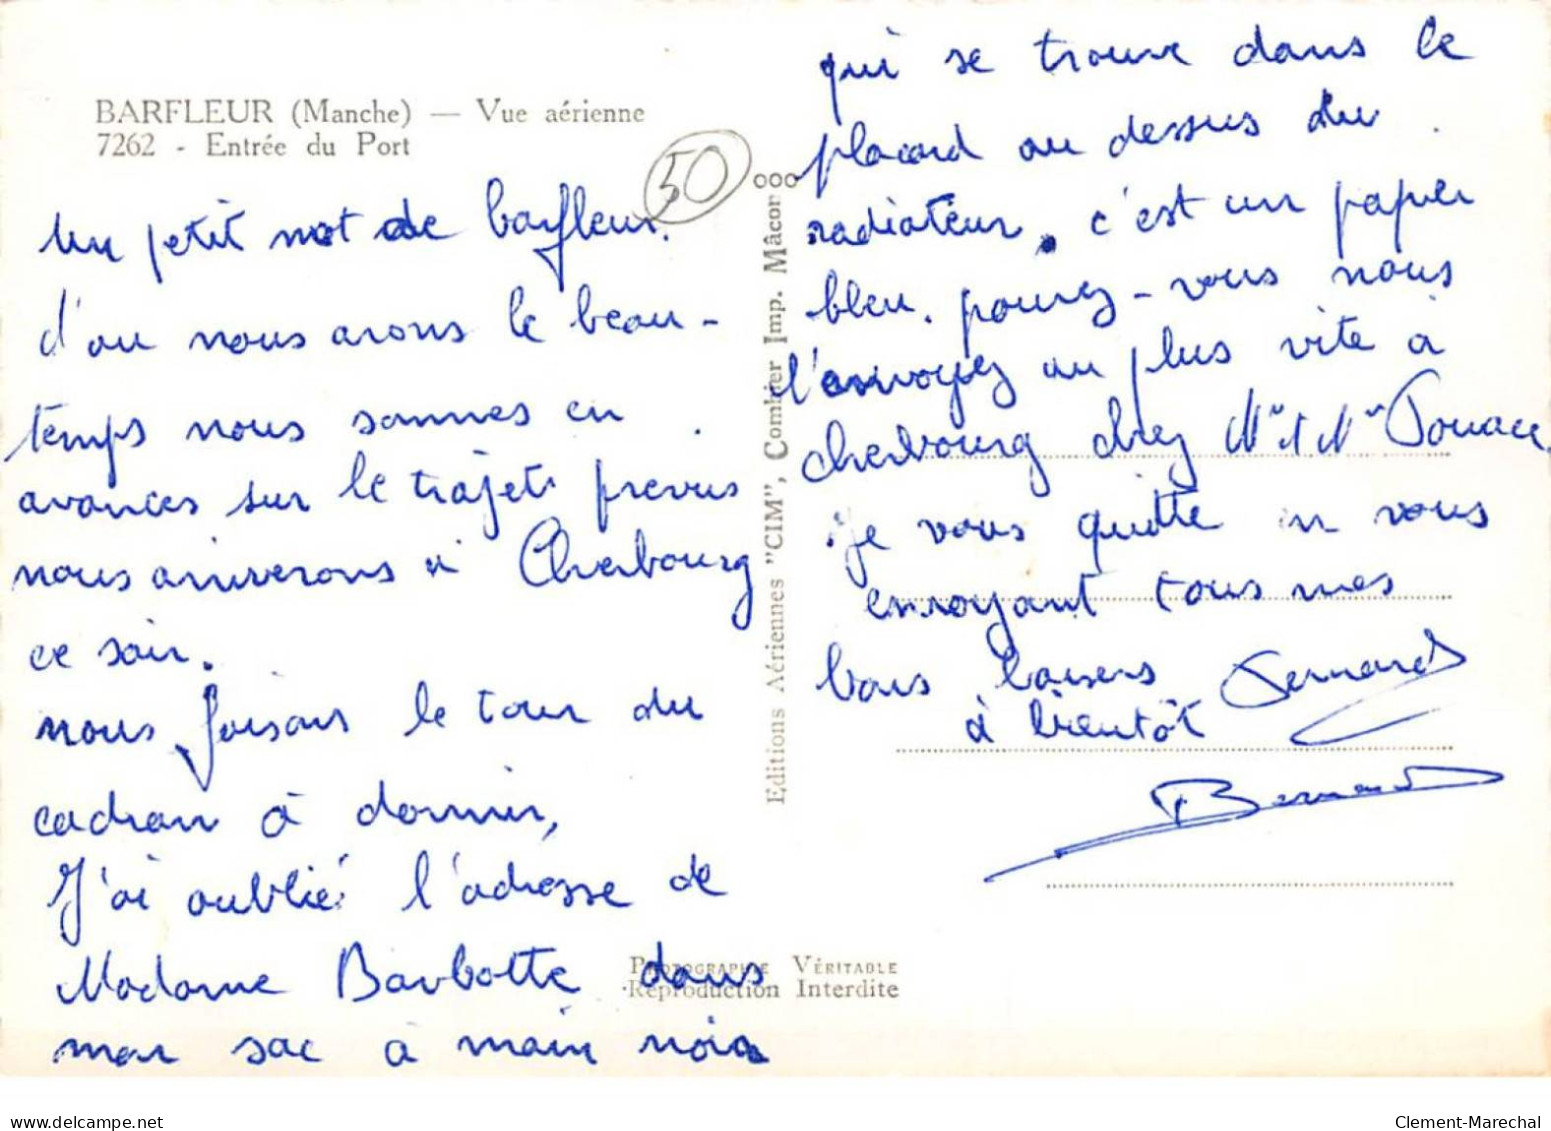 BARFLEUR (Manche) — Vue aérienne
7262 - Entrée du Port
50
un petit mot de barfleur.
d'ou nous avons le beau-
temps nous sommes en
avances sur le trajet prevus
nous arriverons à Cherbourg
ce soir.
nous faisons le tour du
cadran à dormir,
J'ai oublié l'adresse de
Madame Barbotte dans
mon sac à main noir
Editions Aériennes "CIM", Combier Imp. Mâcon
PHOTOGRAPHIE VÉRITABLE
Reproduction Interdite
qui se trouve dans le
placard au dessus du
radiateur. c'est un papier
bleu. pourez-vous nous
l'envoyez au plus vite à
cherbourg chez Mr & Mme
je vous quitte en vous
envoyant tous mes
bons baisers Bernard
à bientôt
Bernard
delcampe.net
Clement-Marechal